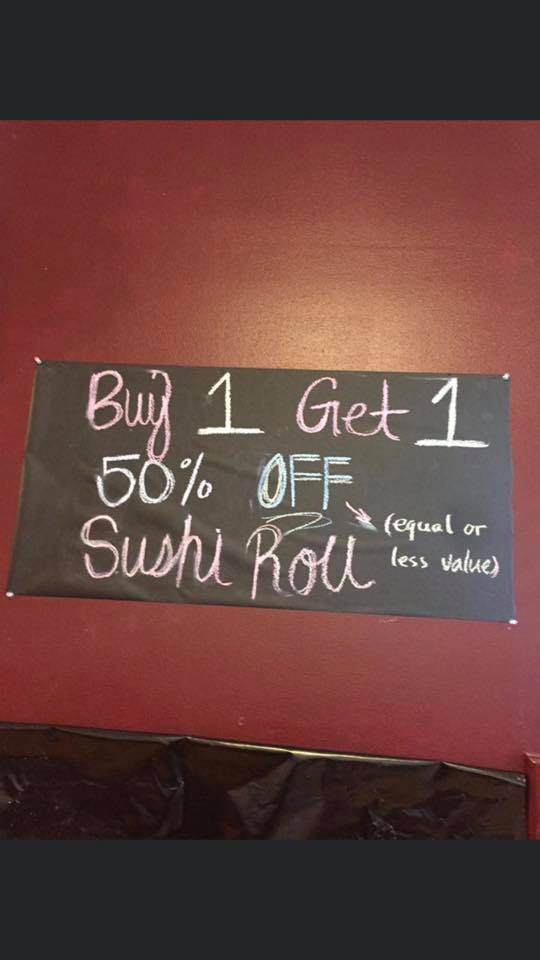 Buy 1 Get 1
50% OFF
Sushi Roll
(equal or
less value)